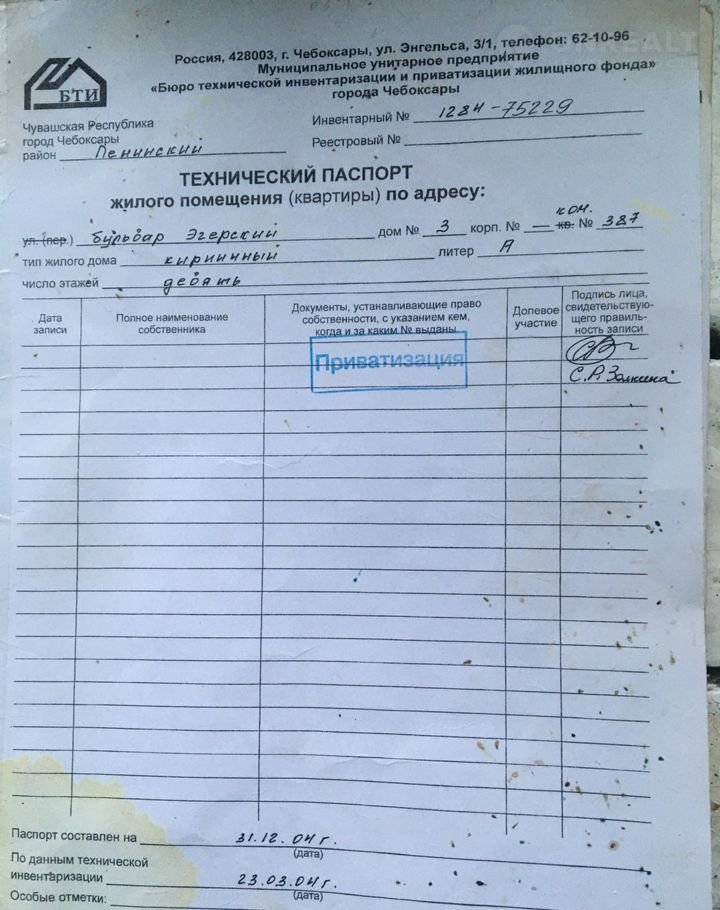 Россия, 428003, г. Чебоксары, ул. Энгельса, 3/1, телефон: 62-10-96
Муниципальное унитарное предприятие
«Бюро технической инвентаризации и приватизации жилищного фонда»
города Чебоксары
БТИ
Чувашская Республика
город Чебоксары
район Ленинский
Инвентарный № 1284-75229
Реестровый №
ТЕХНИЧЕСКИЙ ПАСПОРТ
жилого помещения (квартиры) по адресу:
ул. (пер.) бульвар Эгерский дом № 3 корп. № — кв. ком. № 387
тип жилого дома кирпичный литер А
число этажей девять
Дата записи
Полное наименование собственника
Документы, устанавливающие право собственности, с указанием кем, когда и за каким № выданы
Долевое участие
Подпись лица, свидетельствующего правильность записи
Приватизация
С.Р. Золкина
Паспорт составлен на 31.12.04г.
(дата)
По данным технической
инвентаризации 23.03.04г.
(дата)
Особые отметки: